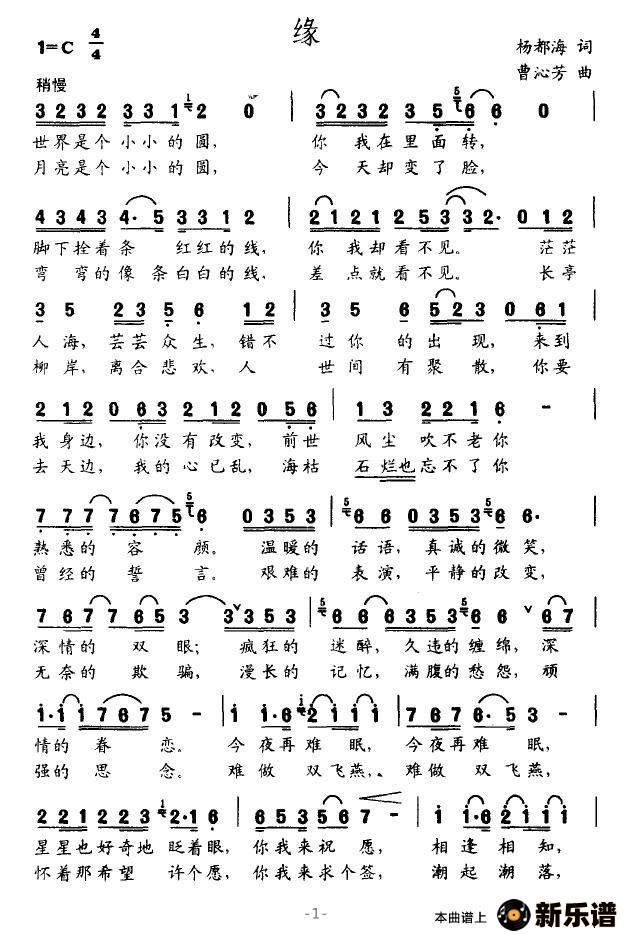 缘
1=C 4/4
杨都海 词
曹沁芳 曲
稍慢
3 2 3 2 3 3 1 1 2 0 3 2 3 2 3 5 5 6 6 0
世界是个小小的圆, 你 我在里面转,
月亮是个小小的圆, 今 天却变了脸,
4 3 4 3 4· 5 3 3 1 2 2 1 2 1 2 5 3 3 3 2· 1 2
脚下拴着条 红红的线, 你 我却看不见。 茫茫
弯 弯的像条白白的线, 差 点就看不见。 长亭
3 5 2 3 5 6 0 1 2 3 5 6 5 2 3 0 6 1
人海, 芸芸众生, 错不 过你 的出现, 来到
柳岸, 离合悲欢, 人 世间 有聚散, 你要
2 1 2 0 6 3 2 1 2 0 5 6 1 3 2 2 1 6 -
我身边, 你没有改变, 前世 风尘 吹不老你
去天边, 我的心已乱, 海枯 石烂也忘不了你
7 7 7 7 6 7 5 5 6 0 3 5 3 5 6 6 0 3 5 3 5 6·
熟悉的 容 颜。 温暖的 话语, 真诚的微笑,
曾经的 誓 言。 艰难的 表演, 平静的改变,
7 6 7 7 6 5 3 3 3 5 3 5 6 6 6 3 5 3 5 6 6 7
深情的 双眼; 疯狂的 迷醉, 久违的缠绵, 深
无奈的 欺骗, 漫长的 记忆, 满腹的愁怨, 顽
1· 1 1 7 6 7 5 - 1 1· 6 2 1 1 1 7 6 7 6· 5 3 -
情的 眷 恋。 今夜再难 眠, 今夜再难 眠,
强的 思 念。 难做 双飞燕, 难做 双飞燕,
2 2 1 2 2 3 1 2· 1 6 6 5 3 5 6 7 - 1 1· 6 2 1 1 1
星星也好奇地 眨着眼, 你我来祝愿, 相逢相知,
怀着那希望 许个愿, 你我来求个签, 潮起潮落,
-1-
本曲谱上 新乐谱